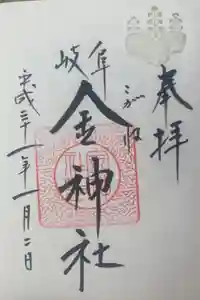 奉拝
岐阜
こがね
金神社
平成三十一年一月二日